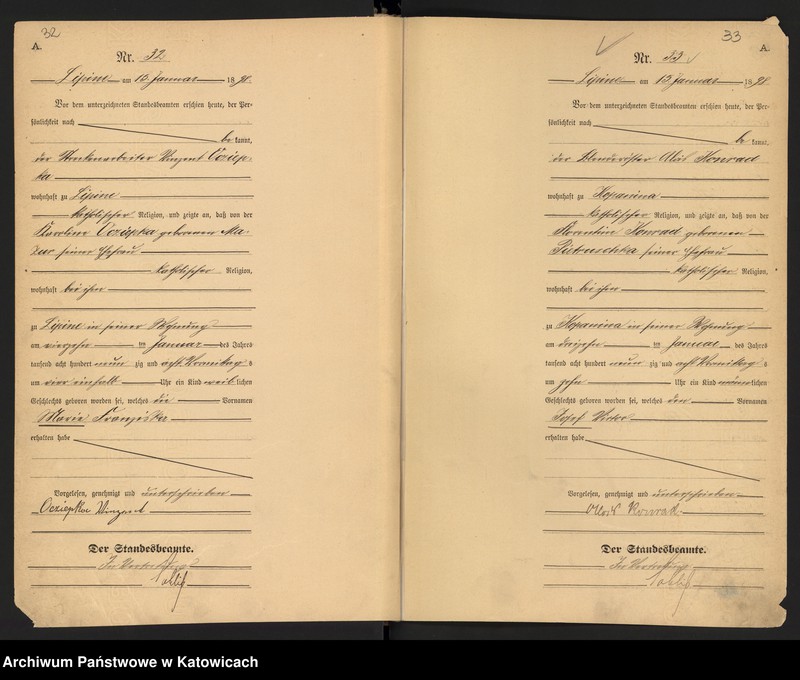 32
A.
Nr. 32
Lipine am 15 Januar 1898.
Vor dem unterzeichneten Standesbeamten erschien heute, der Per-
sönlichkeit nach
be kannt,
der Vinzent Oczep-
ka
wohnhaft zu Lipine
katholischer Religion, und zeigte an, daß von der
Karoline Oczepka geborenen Ma-
zur seiner Ehefrau
katholischer Religion,
wohnhaft bei ihm
zu Lipine in seiner Wohnung
am vierzehn ten Januar des Jahres
tausend acht hundert neun zig und acht Vormittag s
um vier einhalb Uhr ein Kind weib lichen
Geschlechts geboren worden sei, welches die Vornamen
Marie Franziska
erhalten habe
Vorgelesen, genehmigt und unterschrieben
Oczepka Vinzent
Der Standesbeamte.
In Vertretung
33
A.
Nr. 33
Lipine am 15 Januar 1898
Vor dem unterzeichneten Standesbeamten erschien heute, der Per-
sönlichkeit nach
be kannt,
der Alois Konrad
wohnhaft zu Kopanina
katholischer Religion, und zeigte an, daß von der
Florentine Konrad geborenen
Pietruschka seiner Ehefrau
katholischer Religion,
wohnhaft bei ihm
zu Kopanina in seiner Wohnung
am dreizehn ten Januar des Jahres
tausend acht hundert neun zig und acht Vormittag s
um zehn Uhr ein Kind männ lichen
Geschlechts geboren worden sei, welches den Vornamen
Josef Victor
erhalten habe
Vorgelesen, genehmigt und unterschrieben
Alois Konrad
Der Standesbeamte.
In Vertretung
Archiwum Państwowe w Katowicach